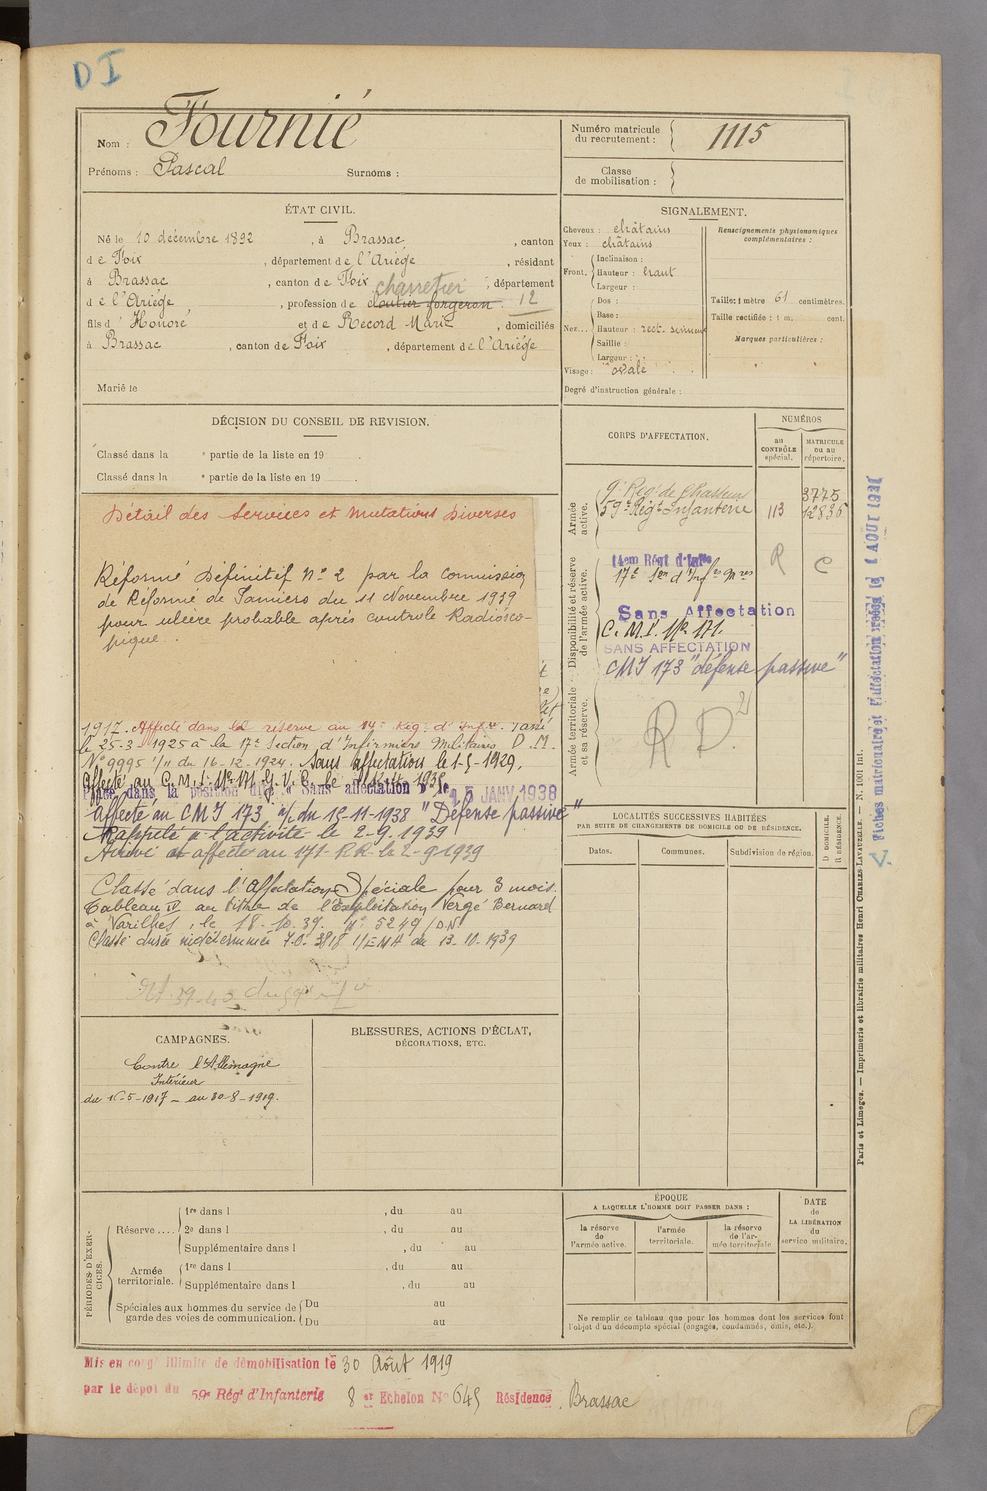 DI
Nom : Fournié
Prénoms : Pascal Surnoms :
Numéro matricule du recrutement : 1115
Classe de mobilisation :
ÉTAT CIVIL.
Né le 10 décembre 1892, à Brassac, canton
de Foix, département de l'Ariège, résidant
à Brassac, canton de Foix, département
charretier
de l'Ariège, profession de cloutier forgeron. 12
fils d' Honoré et de Record Marie, domiciliés
à Brassac, canton de Foix, département de l'Ariège
Marié le
SIGNALEMENT.
Cheveux : châtains
Yeux : châtains
Front. Inclinaison :
Hauteur : haut
Largeur :
Nez... Dos :
Base :
Hauteur : rect. sinueux
Saillie :
Largeur :
Visage : ovale
Renseignements physionomiques complémentaires :
Taille : 1 mètre 61 centimètres.
Taille rectifiée : 1 m. cent.
Marques particulières :
Degré d'instruction générale :
DÉCISION DU CONSEIL DE REVISION.
Classé dans la e partie de la liste en 19 .
Classé dans la e partie de la liste en 19 .
Détail des Services et Mutations Diverses
Réformé Définitif N° 2 par la Commission
de Réforme de Pamiers du 11 Novembre 1939
pour ulcère probable après controle Radiosco-
pique.
1917. Affecté dans la réserve au 14e Rég. d'Infie. Passé
le 25-3-1925 à la 17e Section d'Infirmiers Militaires D.M.
N° 9995 1/11 du 16-12-1924. Sans affectation le 1-5-1929.
Affecté au C.M.I. N° 171
Placé dans la position dite « Sans affectation » le 15 JANV 1938
Affecté au CMI 173 du 15-11-1938 "Défense passive"
Rappelé à l'activité le 2-9-1939
Arrivé et affecté au 171 R.R. le 2-9-1939
Classé dans l'Affectation Spéciale pour 3 mois.
Tableau IV au titre de l'Exploitation Vergé Bernard
à Varilhes, le 18-10-39. N° 5249/DN
Classé durée indéterminée 7.0. 3818 1/EMA du 13-10-1939
CORPS D'AFFECTATION.
NUMÉROS
au CONTRÔLE spécial.
MATRICULE ou au répertoire.
Armée active.
9e Régt de Chasseurs 3775
59e Régt Infanterie 113 12836
Disponibilité et réserve de l'armée active.
14em Régt d'Infie R C
17e Son d'Infres Mres
Sans Affectation
C.M.I. N° 171.
SANS AFFECTATION
CMI 173 "défense passive"
Armée territoriale et sa réserve.
R D 2
LOCALITÉS SUCCESSIVES HABITÉES
PAR SUITE DE CHANGEMENTS DE DOMICILE OU DE RÉSIDENCE.
Dates. Communes. Subdivision de région. D DOMICILE. R RÉSIDENCE.
CAMPAGNES.
Contre l'Allemagne
Intérieur
du 16-5-1917 — au 30-8-1919.
BLESSURES, ACTIONS D'ÉCLAT,
DÉCORATIONS, ETC.
PÉRIODES D'EXERCICES.
Réserve.... 1re dans l , du au
2e dans l , du au
Supplémentaire dans l , du au
Armée territoriale. 1re dans l , du au
Supplémentaire dans l , du au
Spéciales aux hommes du service de garde des voies de communication. Du au
Du au
ÉPOQUE
A LAQUELLE L'HOMME DOIT PASSER DANS :
la réserve de l'armée active.
l'armée territoriale.
la réserve de l'armée territoriale
DATE de LA LIBÉRATION du service militaire.
Ne remplir ce tableau que pour les hommes dont les services font
l'objet d'un décompte spécial (engagés, condamnés, omis, etc.).
Mis en congé illimité de démobilisation le 30 Août 1919
par le dépôt du 59e Régt d'Infanterie 8 Echelon N° 645 Résidence Brassac
Paris et Limoges. — Imprimerie et librairie militaires Henri CHARLES-LAVAUZELLE. — N. 1001 int.